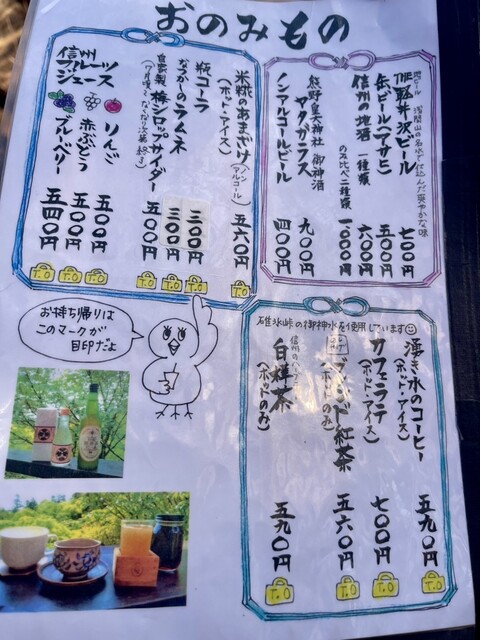 おのみもの
地ビール 浅間山の名水で仕込んだ爽やかな味
THE軽井沢ビール 七〇〇円
缶ビール(アサヒ) 五〇〇円
信州の地酒 一種類 六〇〇円
のみ比べ二種類 一〇〇〇円
熊野皇大神社 御神酒
ヤタガラス 九〇〇円
ノンアルコールビール 四〇〇円
米糀のあまざけ(ノンアルコール)
(ホット・アイス) 五六〇円
T.O
瓶コーラ 三〇〇円
T.O
なつかしのラムネ 三〇〇円
T.O
自家製 梅シロップサイダー 五〇〇円
T.O
信州
フルーツ
ジュース
りんご 五〇〇円
T.O
赤ぶどう 五〇〇円
T.O
ブルーベリー 五四〇円
T.O
お持ち帰りは
このマークが
目印だよ
碓氷峠の御神水を使用しています
湧き水のコーヒー
(ホット・アイス) 五九〇円
T.O
カフェラテ
(ホット・アイス) 七〇〇円
T.O
紅茶
(ホットのみ) 五六〇円
T.O
白樺茶
(ホットのみ) 五九〇円
T.O